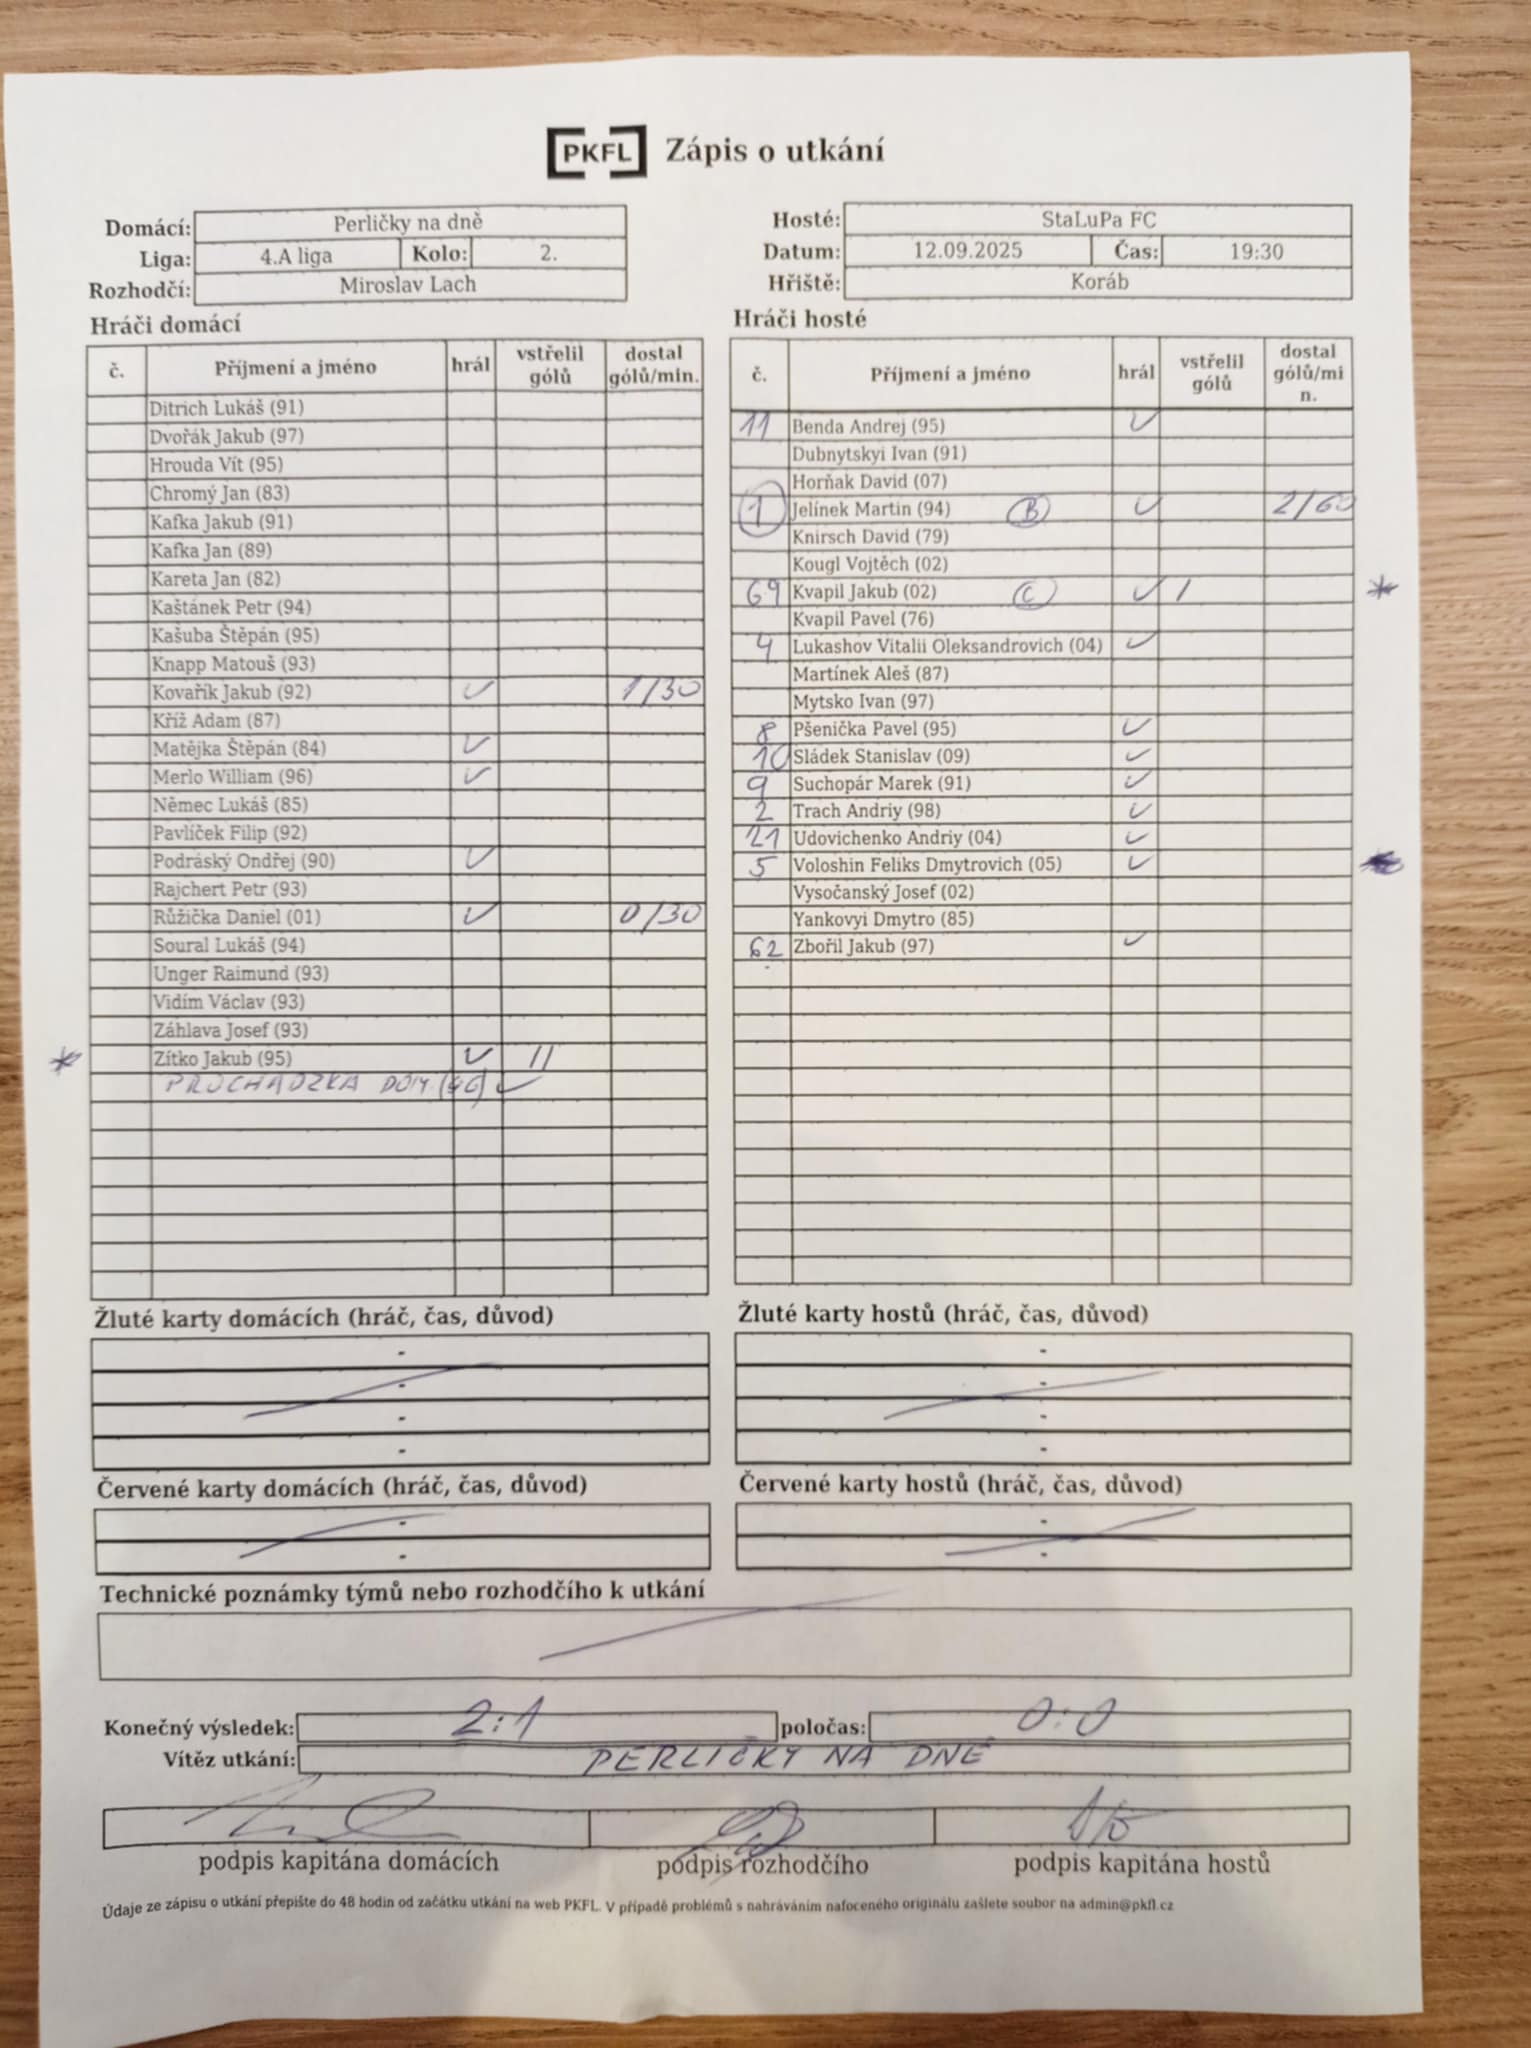 PKFL Zápis o utkání
Domácí: Perličky na dně
Liga: 4.A liga Kolo: 2.
Rozhodčí: Miroslav Lach
Hosté: StaLuPa FC
Datum: 12.09.2025 Čas: 19:30
Hřiště: Koráb
Hráči domácí
č. Příjmení a jméno hrál vstřelil gólů dostal gólů/min.
Ditrich Lukáš (91)
Dvořák Jakub (97)
Hrouda Vít (95)
Chromý Jan (83)
Kafka Jakub (91)
Kafka Jan (89)
Kareta Jan (82)
Kaštánek Petr (94)
Kašuba Štěpán (95)
Knapp Matouš (93)
Kovařík Jakub (92) ✓ 1/30
Kříž Adam (87)
Matějka Štěpán (84) ✓
Merlo William (96) ✓
Němec Lukáš (85)
Pavlíček Filip (92)
Podráský Ondřej (90) ✓
Rajchert Petr (93)
Růžička Daniel (01) ✓ 0/30
Soural Lukáš (94)
Unger Raimund (93)
Vidím Václav (93)
Záhlava Josef (93)
* Zítko Jakub (95) ✓ II
PROCHÁDZKA DOM (96) ✓
Hráči hosté
č. Příjmení a jméno hrál vstřelil gólů dostal gólů/min.
11 Benda Andrej (95) ✓
Dubnytskyi Ivan (91)
Horňak David (07)
1 Jelínek Martin (94) B ✓ 2/60
Knirsch David (79)
Kougl Vojtěch (02)
69 Kvapil Jakub (02) C ✓ I *
Kvapil Pavel (76)
4 Lukashov Vitalii Oleksandrovich (04) ✓
Martínek Aleš (87)
Mytsko Ivan (97)
8 Pšenička Pavel (95) ✓
10 Sládek Stanislav (09) ✓
9 Suchopár Marek (91) ✓
2 Trach Andriy (98) ✓
21 Udovichenko Andriy (04) ✓
5 Voloshin Feliks Dmytrovich (05) ✓
Vysočanský Josef (02)
Yankovyi Dmytro (85)
62 Zbořil Jakub (97) ✓
Žluté karty domácích (hráč, čas, důvod)
-
-
-
-
Žluté karty hostů (hráč, čas, důvod)
-
-
-
-
Červené karty domácích (hráč, čas, důvod)
-
-
Červené karty hostů (hráč, čas, důvod)
-
-
Technické poznámky týmů nebo rozhodčího k utkání
Konečný výsledek: 2:1 poločas: 0:0
Vítěz utkání: PERLIČKY NA DNĚ
podpis kapitána domácích podpis rozhodčího podpis kapitána hostů
Údaje ze zápisu o utkání přepište do 48 hodin od začátku utkání na web PKFL. V případě problémů s nahráváním nafoceného originálu zašlete soubor na admin@pkfl.cz